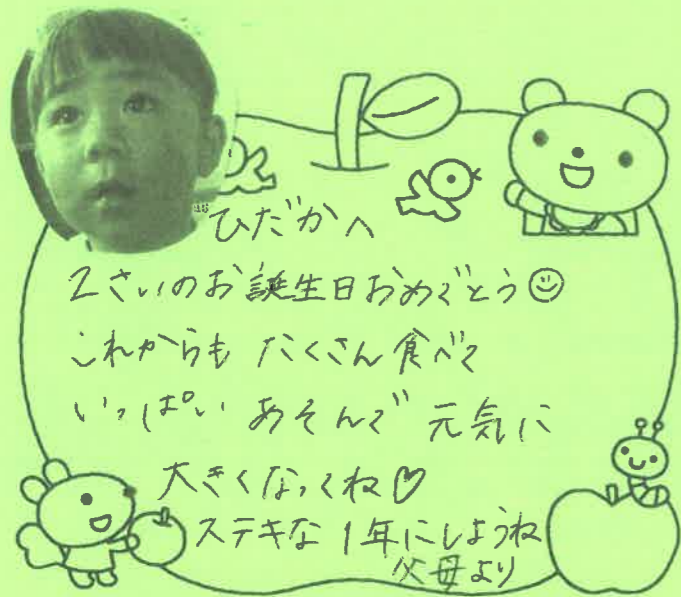 ひだかへ
2さいのお誕生日おめでとう☺
これからも たくさん食べて
いっぱい あそんで 元気に
大きくなってね♡
ステキな1年にしようね
父母より